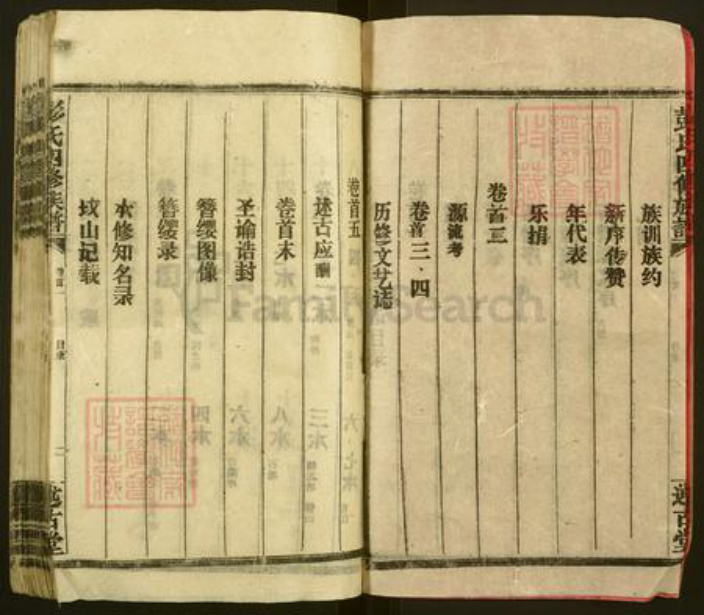 彭氏四修族譜
族训族约
新序传赞
年代表
乐捐
卷首二
源流考
卷首三、四
历修文艺志
卷首五
述古应酬
卷首末
圣谕诰封
簪缨图像
簪缨录
本修知名录
坟山记载
彭氏四修族譜
卷首一
目录
二
述古堂
述古堂
FamilySearch